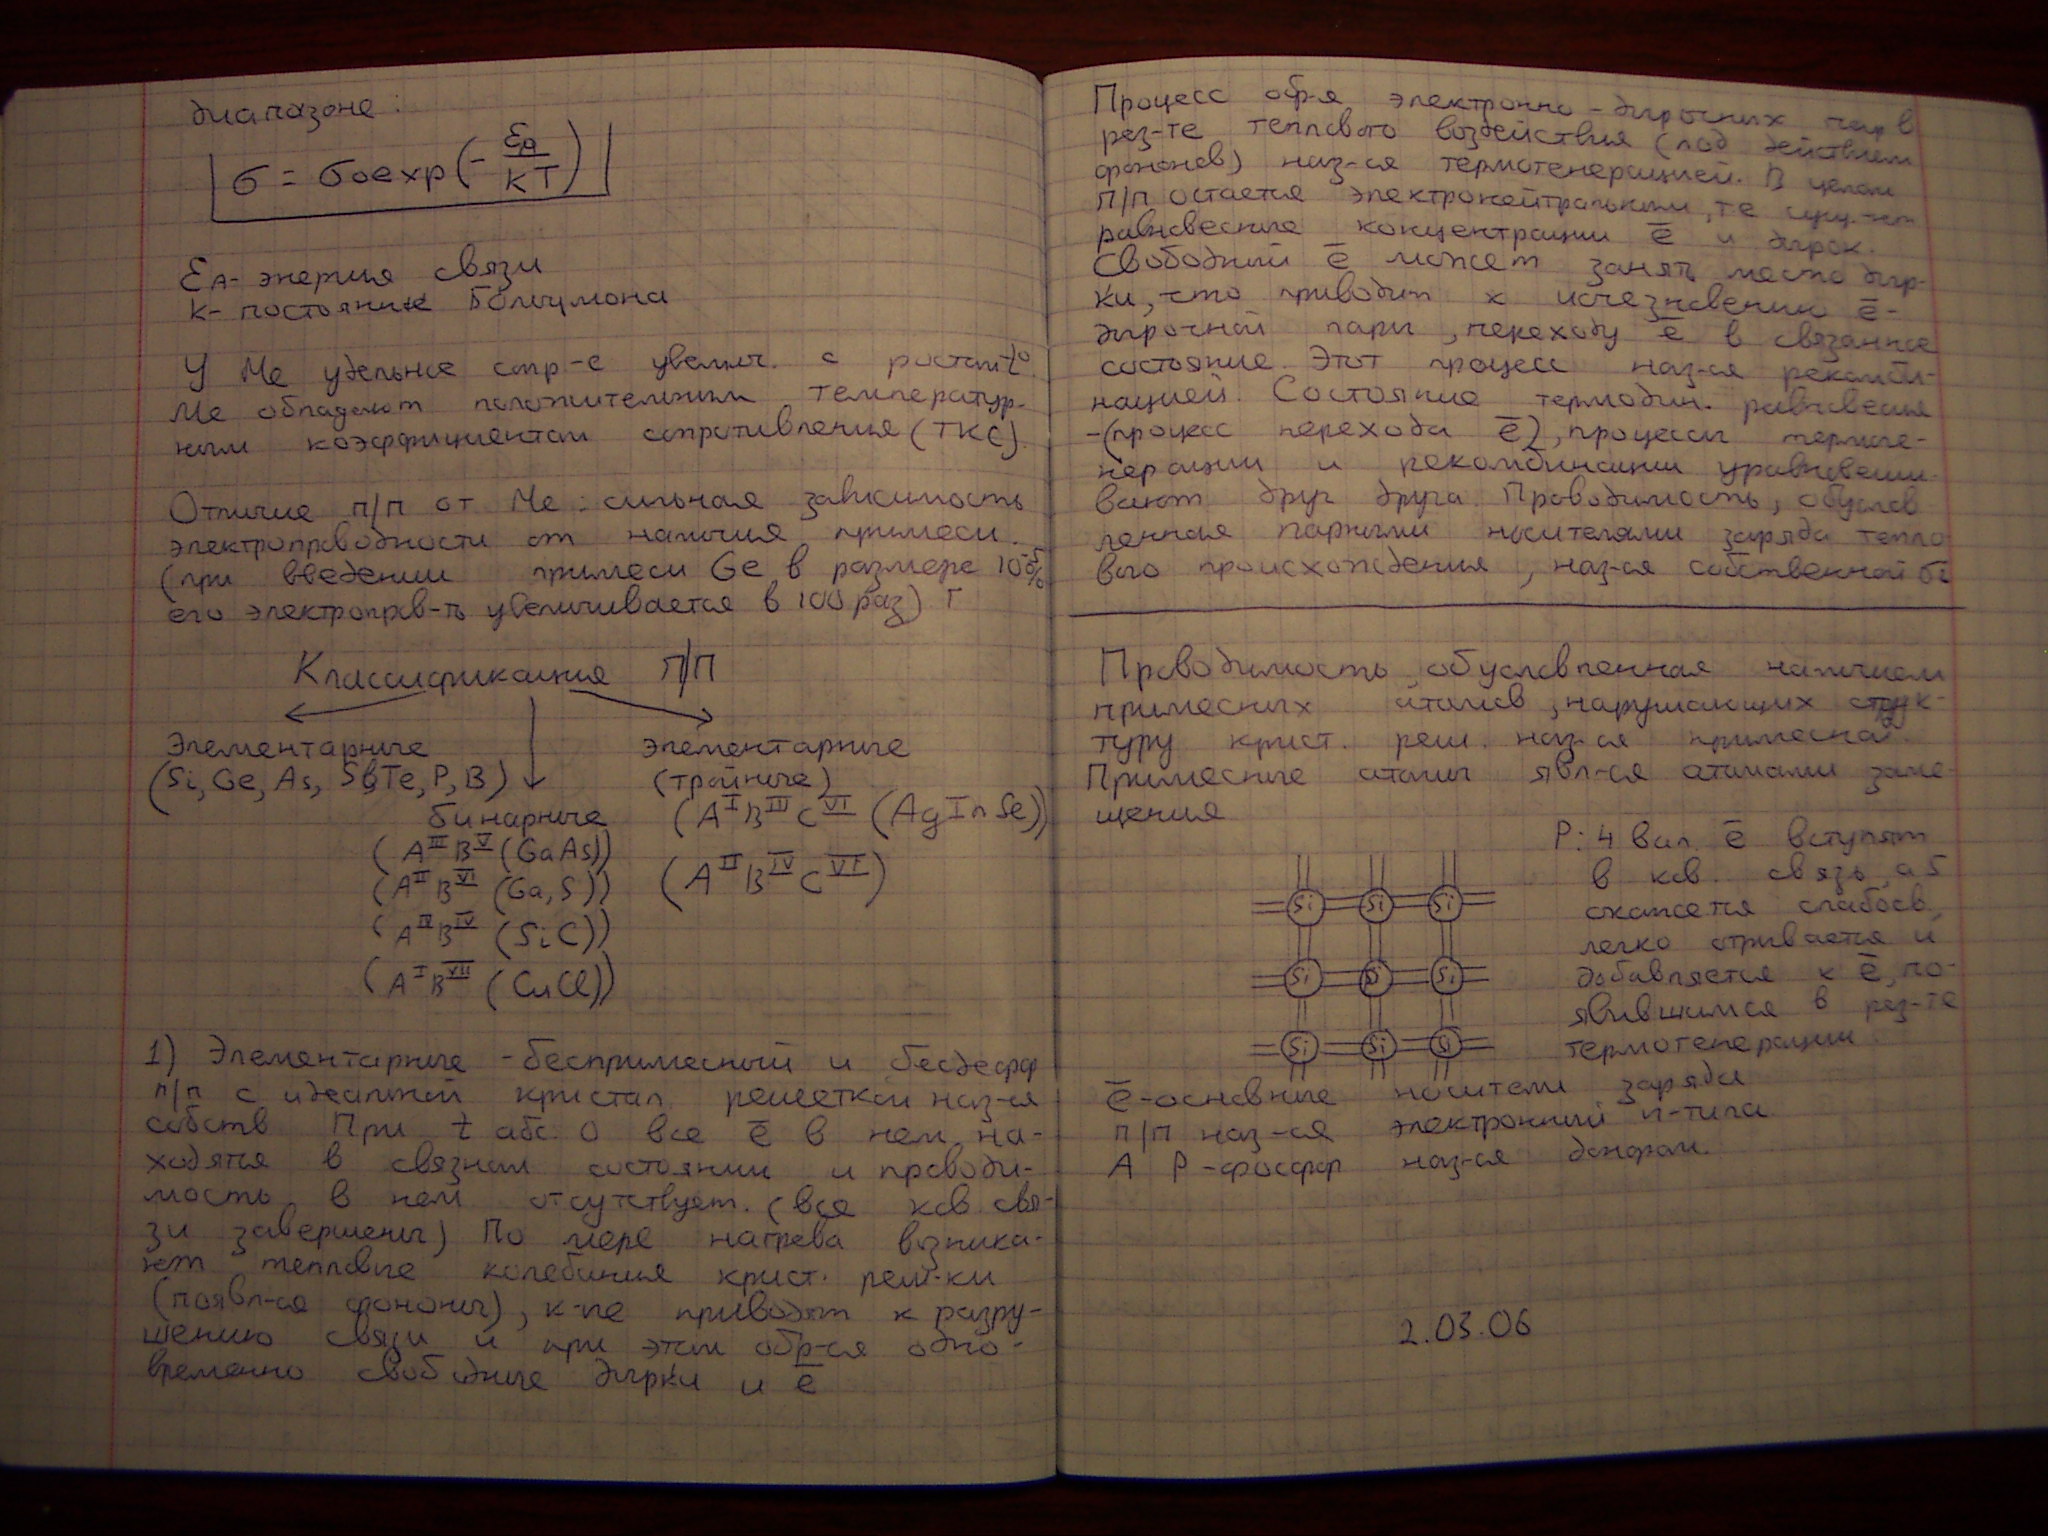 диапазоне:
σ = σ0exp(-εA/kT)
εA - энергия связи
k - постоянные Больцмона
У Ме удельное спр-е увелич. с ростом t°.
Ме обладают положительным температур-
ным коэффициентом сопротивления (ТКС).
Отличие п/п от Ме: сильная зависимость
электропроводности от наличия примеси.
(при введении примеси Ge в размере 10⁻⁵%
его электропров-ть увеличивается в 100 раз)
Классификация п/п
Элементарные
(Si, Ge, As, Sb, Te, P, B)
бинарные
(A^III B^V (GaAs))
(A^II B^VI (Ga, S))
(A^IV B^IV (SiC))
(A^I B^VII (CuCl))
элементарные
(тройные)
(A^I B^III C^VI (AgInSe))
(A^II B^IV C^VI)
1) Элементарные - беспримесный и бездефф
п/п с идеальной кристал. решеткой наз-ся
собств При t абс. 0 все ē в нем на-
ходятся в связном состоянии и проводи-
мость в нем отсутствует. (все ков свя-
зи завершены) По мере нагрева возника-
ют тепловые колебания крист. реш-ки
(появл-ся фононы), к-ые приводят к разру-
шению связи и при этом обр-ся одно-
временно свободные дырки и ē
Процесс обр-я электронно-дырочных пар в
рез-те теплового воздействия (под действием
фононов) наз-ся термогенерацией. В целом
п/п остается электронейтральным, те сущ-ют
равновесные концентрации ē и дырок.
Свободный ē может занять место дыр-
ки, что приводит к исчезновению ē-
дырочной пары, переходу ē в связанное
состояние. Этот процесс наз-ся рекомби-
нацией. Состояние термодин. равновесия
-(процесс перехода ē), процессы термоге-
нерации и рекомбинации уравновеши
вают друг друга. Проводимость, обуслов
ленная парными носителями заряда тепло
вого происхождения, наз-ся собственной
Проводимость, обусловленная наличием
примесных атомов, нарушающих струк-
туру крист. реш. наз-ся примесной.
Примесные атомы явл-ся атомами заме-
щения
P: 4 вал. ē вступят
в ков. связь, а 5
окажется слабосв,
легко отрывается и
добавляется к ē, по-
явившимся в рез-те
термогенерации.
Si Si Si
Si Si Si
Si Si Si
ē - основные носители заряда
п/п наз-ся электронный n-типа
А P - фосфор наз-ся донором.
2.03.06